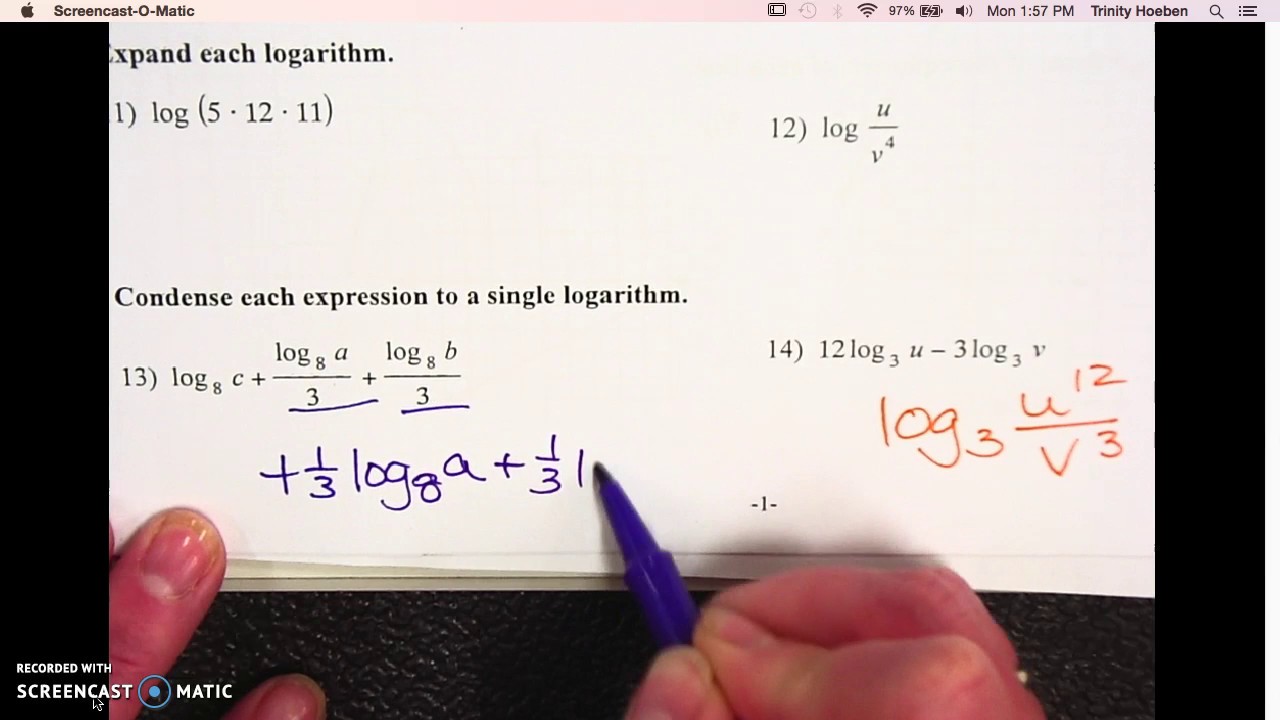 Screencast-O-Matic 97% Mon 1:57 PM Trinity Hoeben
xpand each logarithm.
1) log (5 · 12 · 11)
12) log u/v⁴
Condense each expression to a single logarithm.
13) log₈ c + log₈ a/3 + log₈ b/3
14) 12 log₃ u − 3 log₃ v
log₃ u¹²/v³
+ 1/3 log₈ a + 1/3 l
-1-
RECORDED WITH
SCREENCAST MATIC